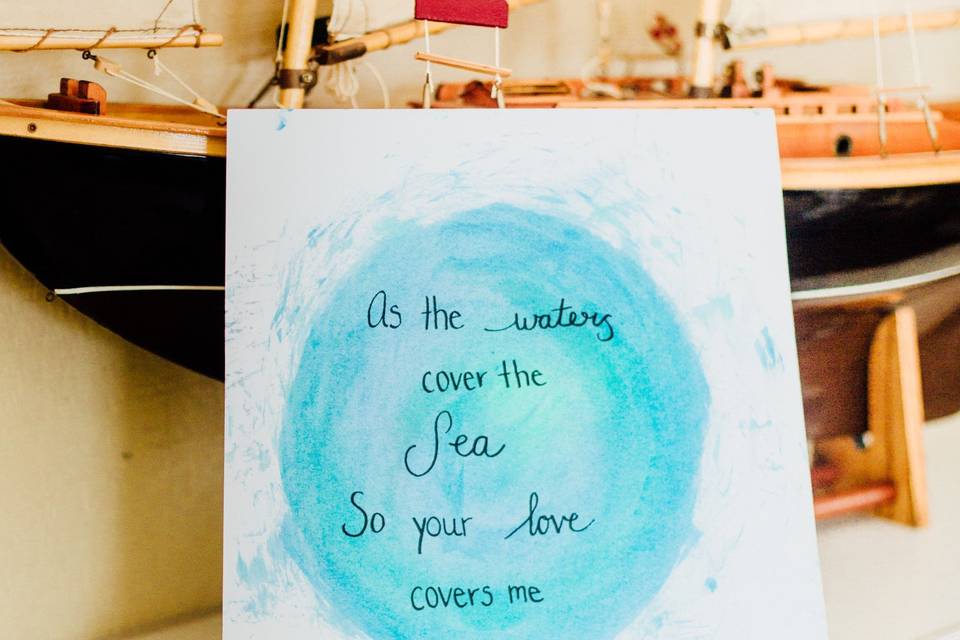 As the waters
cover the
Sea
So your love
covers me